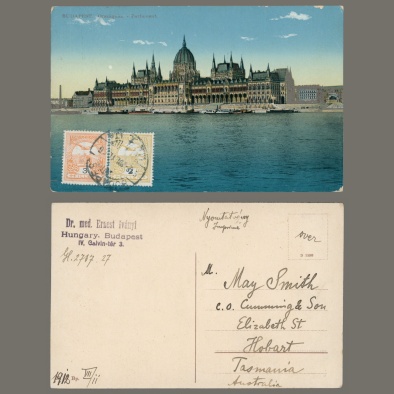 BUDAPEST.
Dr. med. Ernst Iványi
Hungary. Budapest
IV. Calvin-tér 3.
Nyomtatvány
Imprimé
over
M. May Smith
c.o. Cumming & Son
Elizabeth St
Hobart
Tasmania
Australia